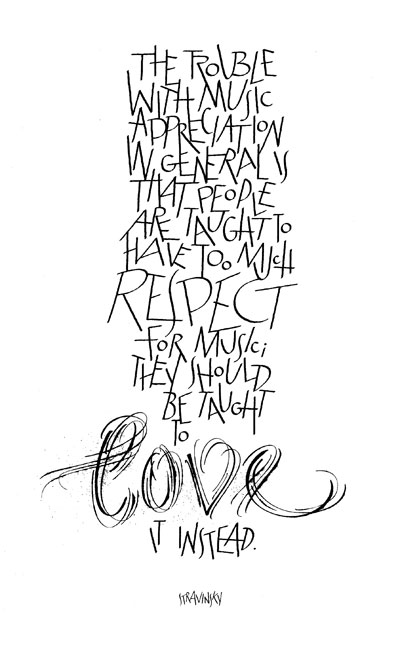 THE TROUBLE
WITH MUSIC
APPRECIATION
IN GENERAL IS
THAT PEOPLE
ARE TAUGHT TO
HAVE TOO MUCH
RESPECT
FOR MUSIC;
THEY SHOULD
BE TAUGHT
TO
love
IT INSTEAD.
STRAVINSKY